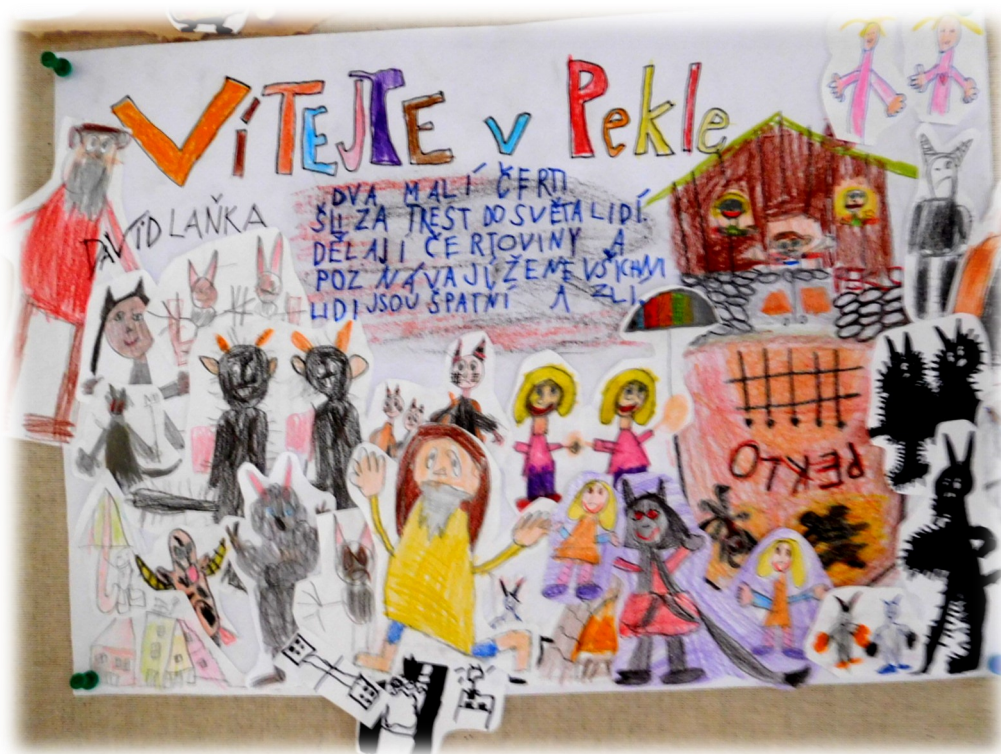 VíTEJTE v Pekle
DAVID LAŇKA
DVA MALÍ ČERTI
ŠLI ZA TREST DO SVĚTA LIDÍ.
DĚLAJÍ ČERTOVINY A
POZNÁVAJÍ, ŽE NE VŠICHNI
LIDI JSOU ŠPATNÍ A ZLÍ.
PEKLO